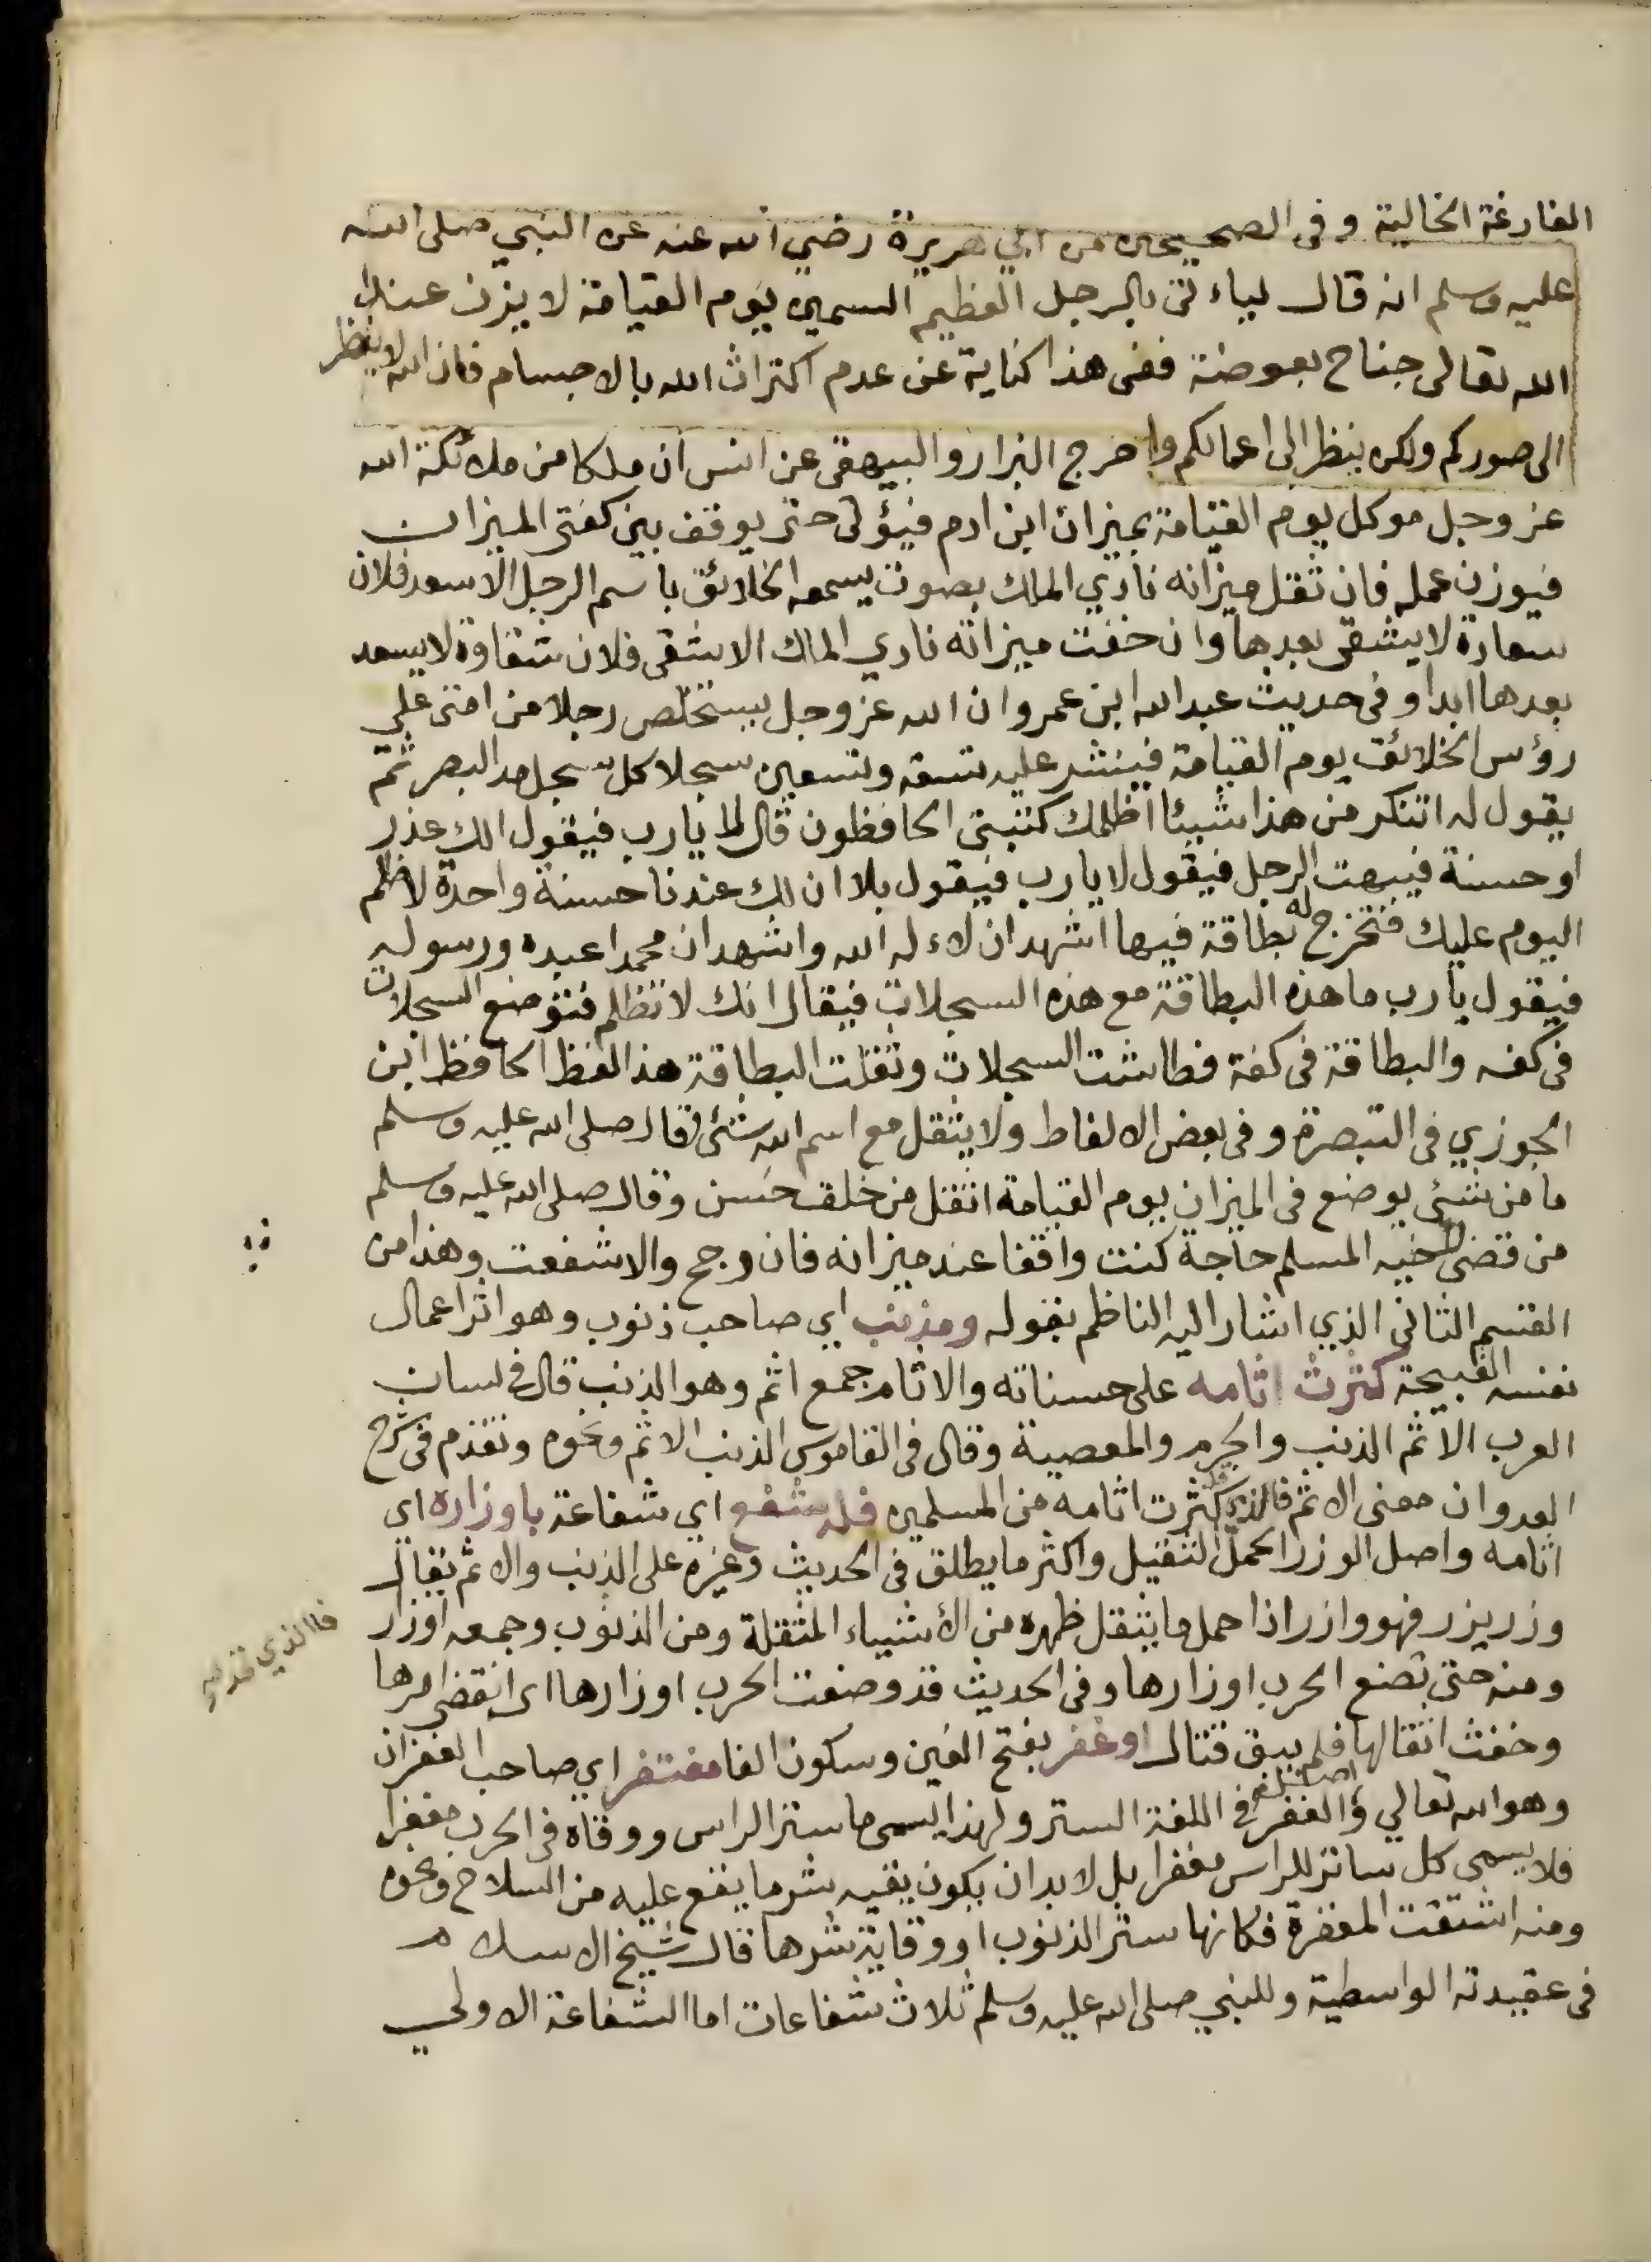 الفارغة الخالية وفى الصحيحين من ابي هريرة رضي الله عنه عن النبي صلى الله
عليه وسلم انه قال لياءتى بالرجل العظيم السمين يوم القيامة لا يزن عند
الله تعالى جناح بعوضة ففى هذا كناية عن عدم اكتراث الله بالاجسام فان الله لا ينظر
الى صوركم ولكن ينظر الى اعمالكم واخرج البزار والبيهقى عن انس ان ملكا من ملائكة الله
عز وجل موكل يوم القيامة بميزان ابن ادم فيؤتى حتى يوقف بين كفتى الميزان
فيوزن عمله فان ثقل ميزانه نادي الملك بصوت يسمعه الخلائق باسم الرجل الا سعد فلان
سعادة لا يشقى بعدها وان خفت ميزانه نادي الملك الا شقى فلان شقاوة لا يسعد
بعدها ابدا وفى حديث عبد الله ابن عمرو ان الله عز وجل يستخلص رجلا من امتى على
رؤس الخلائق يوم القيامة فينشر عليه تسعة وتسعين سجلا كل سجل مد البصر ثم
يقول له اتنكر من هذا شيئا اظلمك كتبتى الحافظون قال لا يارب فيقول الك عذر
او حسنة فيبهت الرجل فيقول لا يارب فيقول بلا ان لك عندنا حسنة واحدة لا ظلم
اليوم عليك فتخرج له بطاقة فيها اشهد ان لاءله الله واشهد ان محمدا عبده ورسوله
فيقول يارب ما هذه البطاقة مع هذه السجلات فيقال انك لا تظلم فتوضع السجلات
فى كفه والبطاقة فى كفة فطاشت السجلات وثقلت البطاقة هذا لفظ الحافظ ابن
الجوزي فى التبصرة وفى بعض الالفاظ ولا يثقل مع اسم الله شئ وقال صلى الله عليه وسلم
ما من شئ يوضع فى الميزان يوم القيامة اثقل من خلق حسن وقال صلى الله عليه وسلم
من قضى لاخيه المسلم حاجة كنت واقفا عند ميزانه فان رجح والا شفعت وهذا من
القسم الثانى الذي اشار اليه الناظم بقوله ومذنب اي صاحب ذنوب وهو اثر اعمال
نفسه القبيحة كثرت اثامه على حسناته والاثام جمع اثم وهو الذنب قال فى لسان
العرب الاثم الذنب والجرم والمعصية وقال فى القاموس الذنب الاثم ونحوه وتقدم فى شرح
العدوان معنى الاثم فالذي قد كثرت اثامه من المسلمين فله شفع اي شفاعة باوزاره اي
اثامه واصل الوزر الحمل الثقيل واكثر ما يطلق فى الحديث وغيره على الذنب والاثم يقال
وزر يزر فهو وازر اذا حمل ما يثقل ظهره من الأشياء المثقلة ومن الذنوب وجمعه اوزار
فالذي قد
ومنه حتى تضع الحرب اوزارها وفى الحديث قد وضعت الحرب اوزارها اى انقضى امرها
وخفت اثقالها فلم يبق قتال او غفر بفتح الغين وسكون الفا مغتفر اي صاحب الغفران
وهو الله تعالي واصل الغفر في اللغة الستر ولهذا يسمى ما ستر الراس ووقاه فى الحرب مغفرا
فلا يسمى كل ساتر للراس مغفرا بل لا بد ان يكون يقيه شر ما يقع عليه من السلاح ونحوه
ومنه اشتقت المغفرة فكانها ستر الذنوب او وقاية شرها قال شيخ الاسلام
فى عقيدته الواسطية وللنبي صلى الله عليه وسلم ثلاث شفاعات اما الشفاعة الاولي